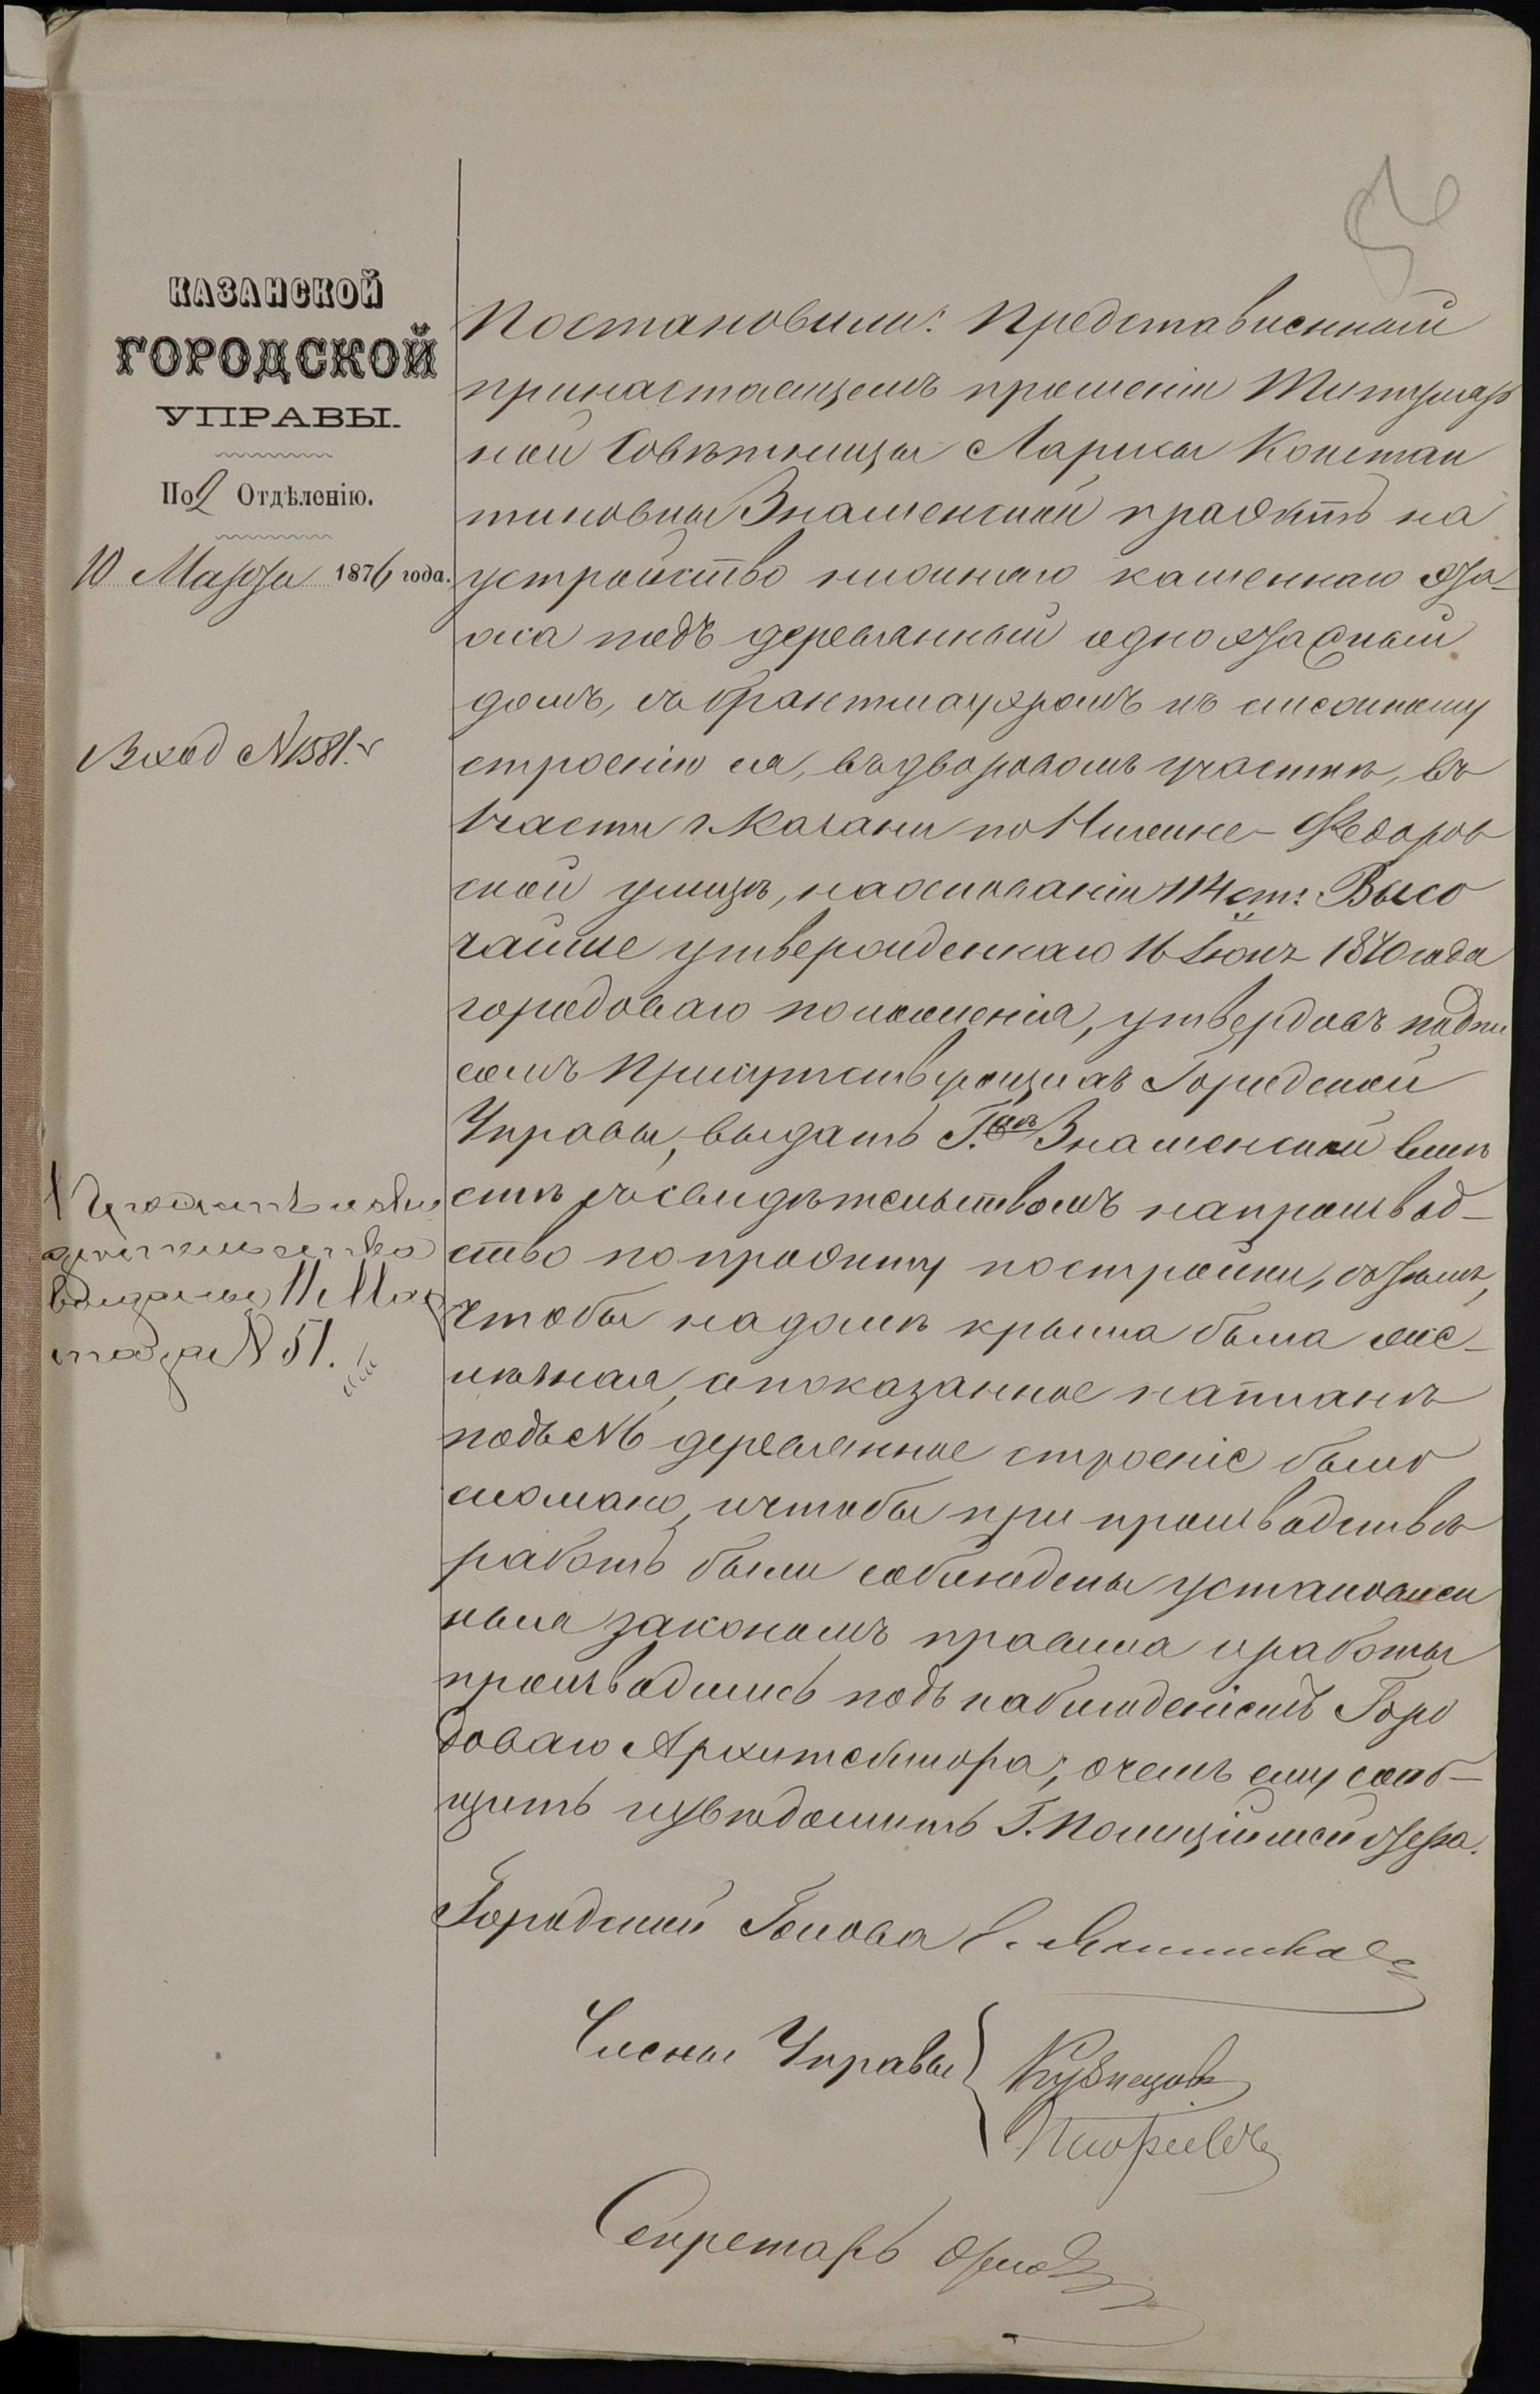 КАЗАНСКОЙ
ГОРОДСКОЙ
УПРАВЫ.
По 2 Отдѣленію.
10 Марта 1876 года.
Вход №1581.
Постановили: Представленный
при настоящемъ прошеніи Титуляр
ной Совѣтницы Ларисы Констан
тиновны Знаменской проэктъ на
устройство нижняго каменнаго эта-
жа подъ деревянный одноэтажный
домъ, съ брантмауэромъ къ смежному
строенію ея, въ дворовомъ участкѣ, въ
1 части г. Казани по Нижне-Федоров
ской улицѣ, на основаніи 114 ст: Высо
чайше утвержденнаго 16 Іюня 1870 года
городоваго положенія, утвердивъ подпи
сомъ Присутствующихъ Городской
Управы, выдать Г.жѣ Знаменской вмѣ
стѣ съ свидѣтельствомъ на производ-
ство по проэкту постройки, съ тѣмъ,
чтобы на домѣ крыша была же-
лѣзная, а показанное на планѣ
подъ №6 деревянное строеніе было
сломано, и чтобы при производствѣ
работъ были соблюдены установлен
ныя закономъ правила и работы
производились подъ наблюденіемъ Горо
доваго Архитектора; о чемъ ему сооб-
щить и увѣдомить Г. Полиціймейстера.
Проэктъ и сви
дѣтельство
выданы 11 Мар
та за №51.
Городской Голова Е. Янишевскій
Члены Управы
Кузнецовъ
Секретарь Орлов